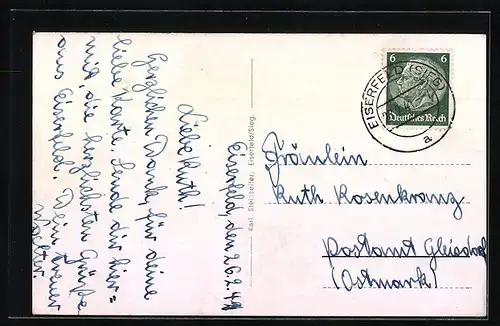 Eiserfeld, den 26.2.41
Liebe Ruth!
Herzlichen Dank für deine
liebe Karte. Sende dir hier=
mit, die herzlichsten Grüße
aus Eiserfeld. Dein treuer
Walter.
Karl Stellzeller, Eiserfeld/Sieg.
6 6
Deutsches Reich
EISERFELD (SIEG)
a
Fräulein
Ruth Rosenkranz
Postamt Gleisdorf
(Ostmark)